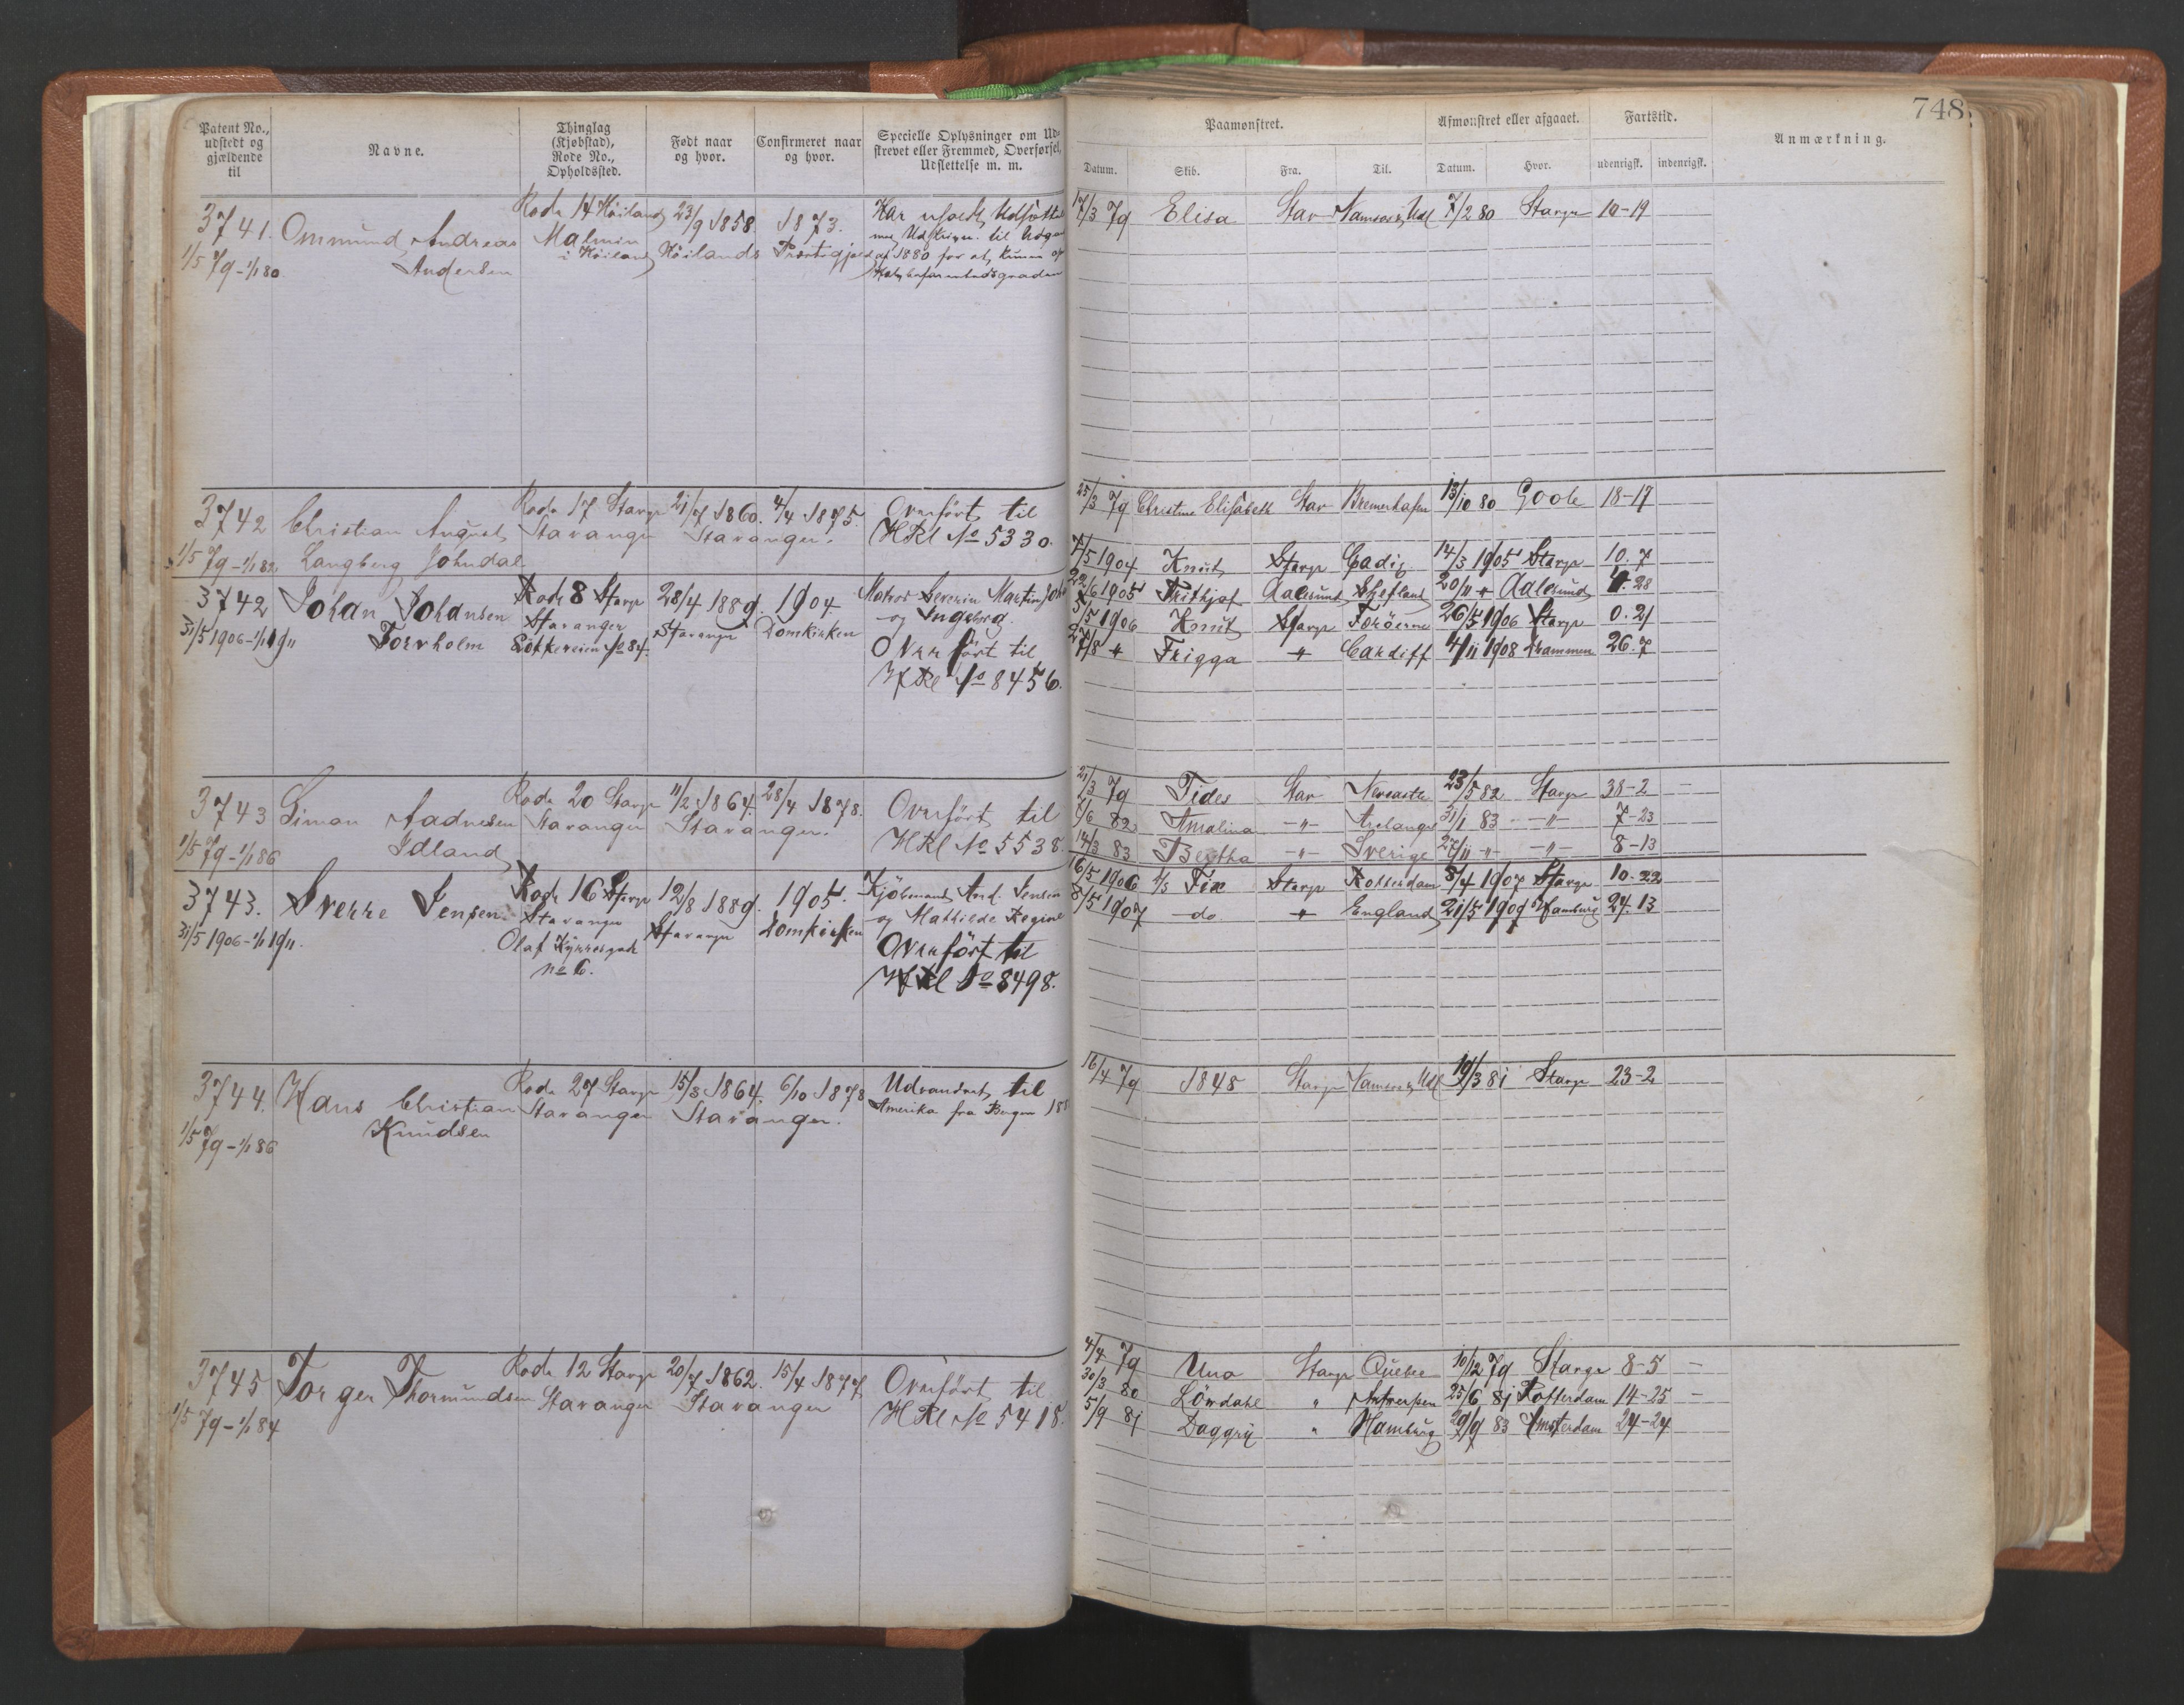 748.
Patent No., udstedt og gjældende til
Navne.
Thinglag (Kjøbstad), Rode No., Opholdssted.
Født naar og hvor.
Confirmeret naar og hvor.
Specielle Oplysninger om Udskrevet eller Fremmed, Overførsel, Udslettelse m. m.
Paamønstret.
Afmønstret eller afgaaet.
Fartstid.
Anmærkning.
Datum. Skib. Fra. Til. Datum. Hvor. udenrigsk. indenrigsk.
3741. Ommund Andreas Rode 14 Höiland 23/9 1858. 1873.
1/5 79 - 1/1 80 Andersen Malmin i Höiland Höilands
til
af 1880 for at
17/3 79 Elisa Stav Namsos & Udl 7/2 80 Stavgr 10-19
3742 Christian August Rode 17 Stavgr 21/7 1860. 4/4 1875. Overført til
1/5 79 - 1/1 82 Langberg Johndal Stavanger Stavanger. HRl No 5330.
25/3 79 Christine Elisabeth Stav Bremerhafen 13/10 80 Goole 18-17
3742 Johan Johansen Rode 8 Stavgr 28/4 1889. 1904 Matros Severin Martin
31/5 1906 - 1/1 1911 Torvholm Stavanger Stavanger Domkirken og Ingeborg.
No 84. Overført til
HRl No 8456.
7/5 1904 Knut Stavgr Cadiz 14/3 1905 Stavgr 10.7
22/6 1905 Frithjof Aalesund Shetland 20/11 " Aalesund 4.28
5/5 1906 Knut Stavgr Foröerne 26/5 1906 Stavgr 0.21
27/8 " Frigga " Cardiff 4/11 1908 Drammen 26.7
3743 Simon Aadnesen Rode 20 Stavgr 11/2 1864. 28/4 1878. Overført til
1/5 79 - 1/1 86 Idland Stavanger Stavanger. HRl No 5538
21/3 79 Fides Stav Newcastle 23/5 82 Stavgr 38-2 -
7/6 82 Amalina -"- Archangel 31/1 83 -"- 7-23
14/3 83 Bertha -"- Sverige 27/11 -"- -"- 8-13
3743. Sverre Jensen Rode 16 Stavgr 12/8 1889. 1905. Kjöbmand And. Jensen
31/5 1906 - 1/1 1911. Stavanger Stavanger Domkirken og Mathilde Regine
Olaf Kyrresgade Overført til
no 6. HRl No 8498.
16/5 1906 S/S Fix Stavgr Rotterdam 5/4 1907 Stavgr 10.22
8/5 1907 do " England 21/5 1909 Hamburg 24.13
3744. Hans Christian Rode 27 Stavgr 15/3 1864. 6/10 1878 Udvandret til
1/5 79 - 1/1 86 Knudsen Stavanger Stavanger. Amerika fra Bergen
16/4 79 1848 Stavgr Namsos & Udl 19/3 81 Stavgr 23-2
3745 Torger Thormundsen Rode 12 Stavgr 20/7 1862. 15/4 1877. Overført til
1/5 79 - 1/1 84 Stavanger Stavanger HRl No 5418.
4/4 79 Una Stavgr Quebec 10/12 79 Stavgr 8-5 -
30/3 80 Lövdahl " Antwerpen 25/6 81 Rotterdam 14-25 -
5/9 81 Daggry " Hamburg 29/9 83 Amsterdam 24-24